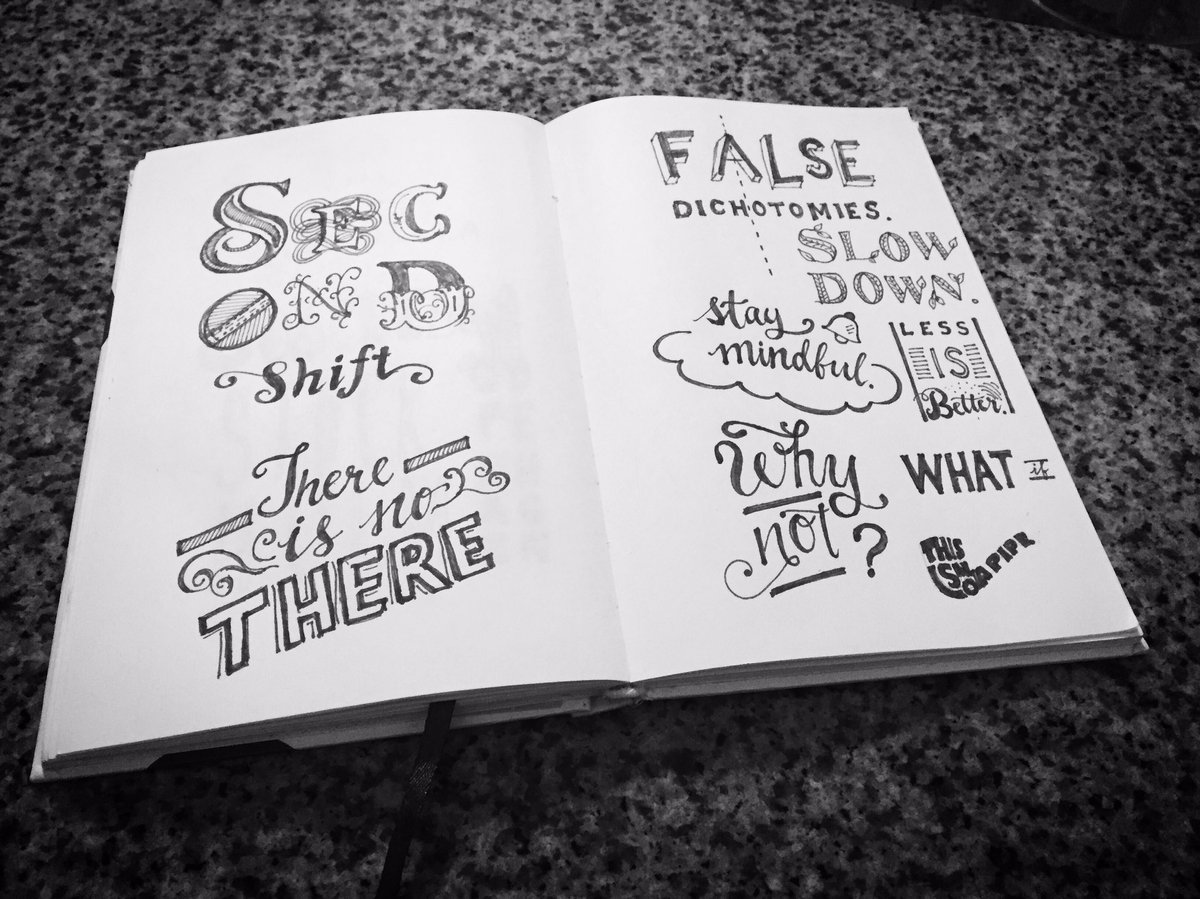 SEC
OND
shift
There
is no
THERE
FALSE
DICHOTOMIES.
SLOW
DOWN.
stay
mindful.
LESS
IS
Better.
Why
not?
WHAT if
THIS
IS N
OT A PIPE